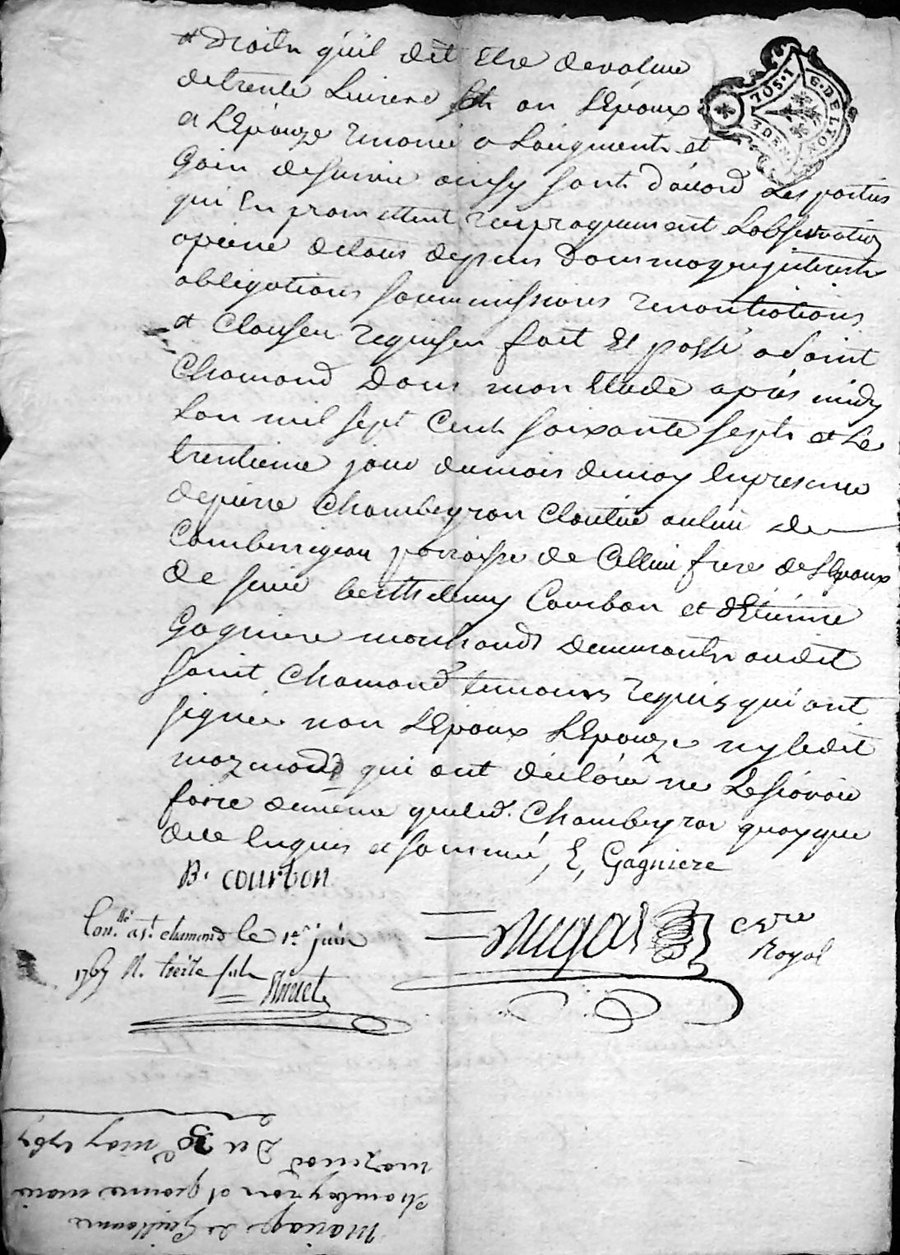 droits qu'il dit Etre de valeur
de trente Livres an L'Epoux
et L'Epouze renoncé a Laugment et
Gain de survie ainsy sont d'acord Les parties
qui En promettent reciproquement L'observation
a peine de tous depens dommages interests
obligations soummissions renontiations
et Clauses requises fait Et passé a Saint
Chamond Dans mon Etude après midy
Lan mil sept Cent soixante sept et Le
trentieme jour du mois de may En presence
de pierre Chambeyron Cloutier au lieu de
paroisse de Cellieu frere de L'Epoux
de sieur berthelemy Courbon et d'Etienne
Gagniere marchands demeurants audit
saint Chamond temoins requis qui ont
signé non L'Epoux L'Epouze ny ledit
mazenod qui ont déclaré ne Le sçavoir
faire de même que led. Chambeyron quoyque
de ce Enquis et sommé, E, Gagniere
B. courbon
Con.llé a st. chamond le 1er juin
1767 R. treize sols
Royal
G. DE LYON
3 DEN.
Mariage de Guillaume
Chambeyron et jeanne marie
mazenod
Du 30 may 1767